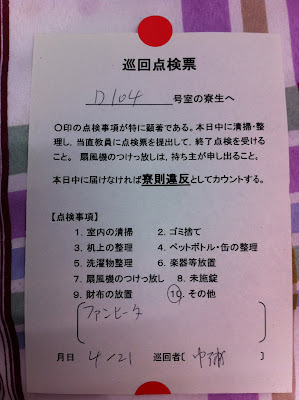 巡回点検票
D104 号室の寮生へ
〇印の点検事項が特に顕著である。本日中に清掃・整
理し、当直教員に点検票を提出して、終了点検を受ける
こと。扇風機のつけっ放しは、持ち主が申し出ること。
本日中に届けなければ寮則違反としてカウントする。
【点検事項】
1. 室内の清掃 2. ゴミ捨て
3. 机上の整理 4. ペットボトル・缶の整理
5. 洗濯物整理 6. 楽器等放置
7. 扇風機のつけっ放し 8. 未施錠
9. 財布の放置 10. その他
ファンヒータ
月日 4/21 巡回者[ ]